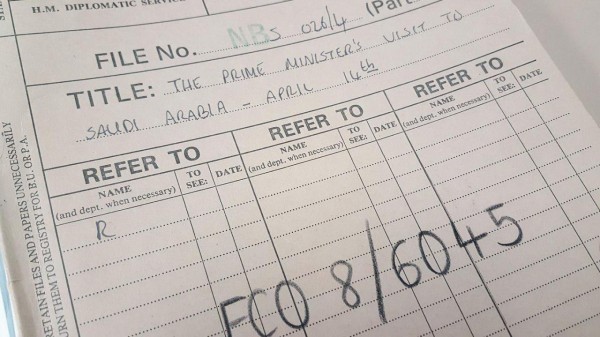 H.M. DIPLOMATIC SERVICE
FILE No. NBS 026/4 (Part
TITLE: THE PRIME MINISTER'S VISIT TO
SAUDI ARABIA - APRIL 14th
REFER TO REFER TO REFER TO
NAME TO SEE: DATE NAME TO SEE: DATE NAME TO SEE: DATE
(and dept. when necessary) (and dept. when necessary) (and dept. when necessary)
R
FCO 8/6045
RETAIN FILES AND PAPERS UNNECESSARILY
TURN THEM TO REGISTRY FOR B.U. OR P.A.